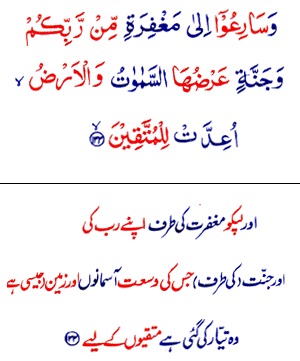 وَسَارِعُوْۤا اِلٰى مَغْفِرَةٍ مِّنْ رَّبِّكُمْ
وَجَنَّةٍ عَرْضُهَا السَّمٰوٰتُ وَالْاَرْضُ ۙ
اُعِدَّتْ لِلْمُتَّقِيْنَ ۙ﴿۱۳۳﴾
اور لپکو مغفرت کی طرف اپنے رب کی
اور جنّت (کی طرف) جس کی وسعت آسمانوں اور زمین (جیسی) ہے
وہ تیّار کی گئی ہے متقیوں کے لیے ﴿۱۳۳﴾